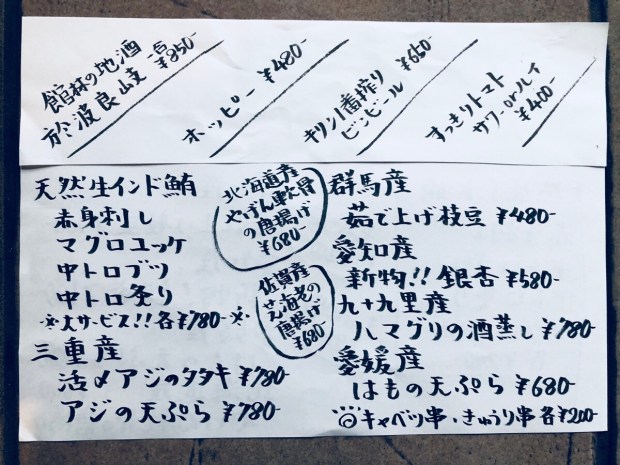 館林の地酒
於波良岐 一合 ¥850-
ホッピー ¥480-
キリン1番搾り
ビンビール ¥650-
すっきりトマト
サワー or ハイ
¥400-
天然生インド鮪
赤身刺し
マグロユッケ
中トロブツ
中トロ炙り
-※大サービス!!各¥780-※-
三重産
活〆アジのタタキ ¥780-
アジの天ぷら ¥780-
北海道産
やげん軟骨
の唐揚げ
¥680-
佐賀産
芝海老の
唐揚げ
¥680-
群馬産
茹で上げ枝豆 ¥480-
愛知産
新物!!銀杏 ¥580-
九十九里産
ハマグリの酒蒸し ¥780-
愛媛産
はもの天ぷら ¥680-
◎キャベツ串・きゅうり串 各¥200-